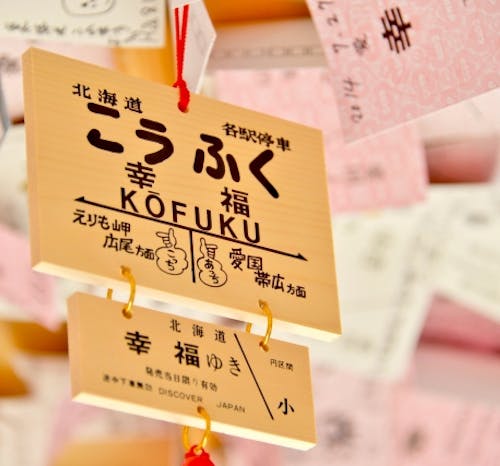 北海道
各駅停車
こうふく
幸福
KŌFUKU
えりも岬
広尾方面
こっち
あっち
愛国
帯広方面
北海道
幸福ゆき
円区間
発売当日限り有効
途中下車無効 DISCOVER JAPAN
小
幸
2014 7.27